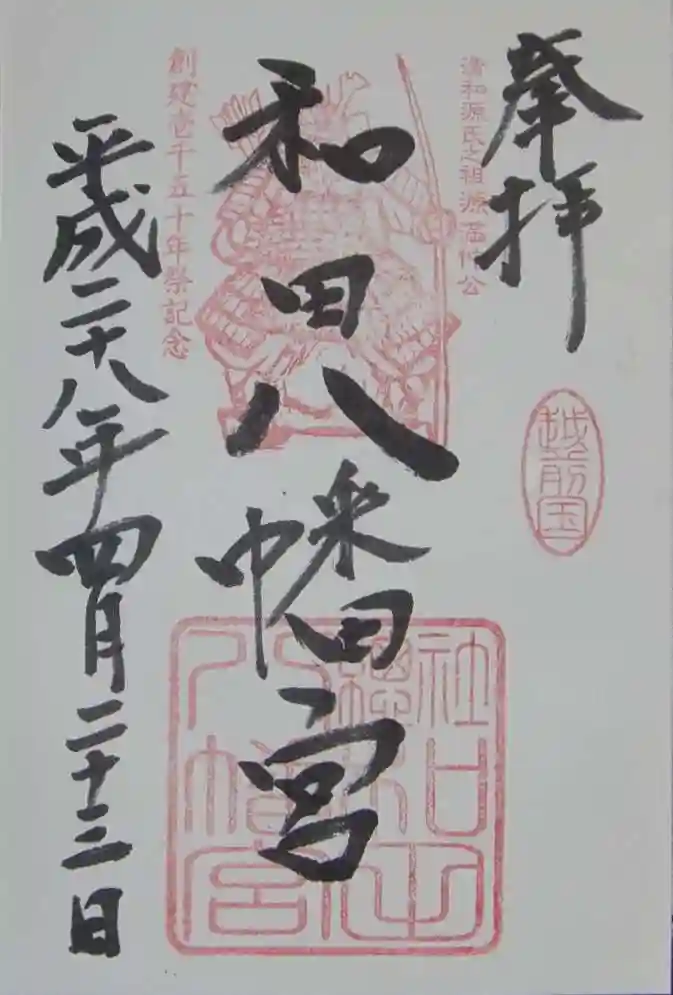 奉拝
越前国
清和源氏之祖源満仲公
和田八幡宮
創建壱千五十年祭記念
平成二十八年四月二十三日